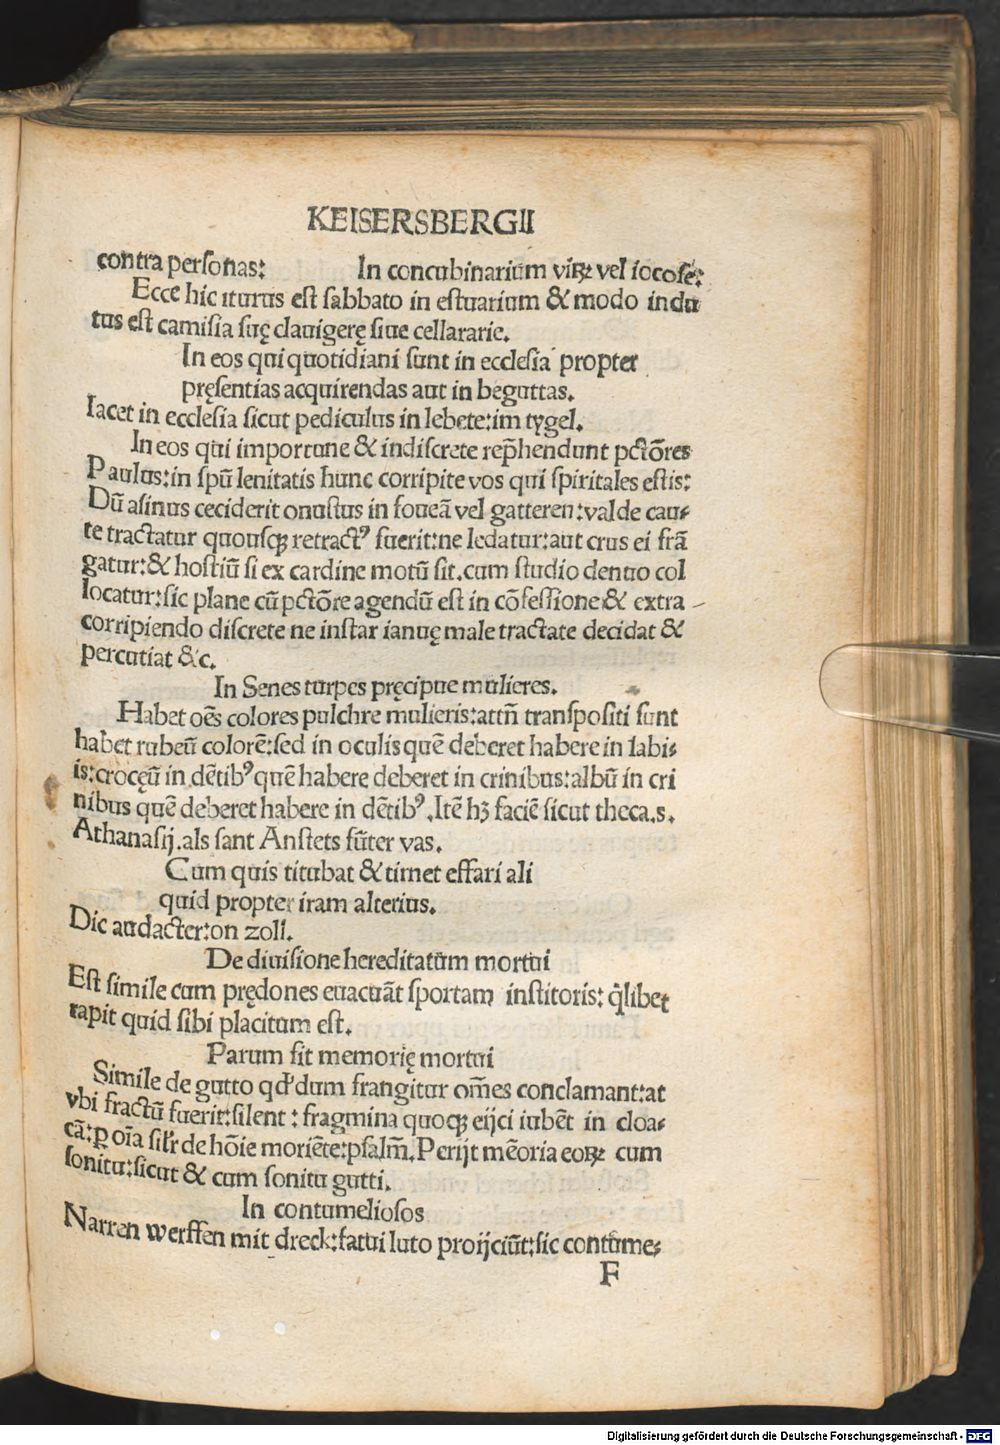 KEISERSBERGII
contra personas: In concubinarium vířꝝ vel iocose:
Ecce hic iturus est sabbato in estuarium & modo indu
tus est camisia suę clauigerę siue cellararie.
In eos qui quotidiani sunt in ecclesia propter
pręsentias acquirendas aut in beguttas.
Iacet in ecclesia sicut pediculus in lebete:im tygel.
In eos qui importune & indiscrete rep̄hendunt pctōres
Paulus:in spū lenitatis hunc corripite vos qui spiritales estis:
Dū asinus ceciderit onustus in foueā vel gatteren:valde cau⸗
te tractatur quousqꝫ retractꝰ fuerit:ne ledatur:aut crus ei frā
gatur:& hostiū si ex cardine motū sit.cum studio denuo col
locatur:sic plane cū pctōre agendū est in cōfessione & extra
corripiendo discrete ne instar ianuę male tractate decidat &
percutiat &c.
In Senes turpes pręcipue mulieres.
Habet oēs colores pulchre mulieris:attñ transpositi sunt
habet rubeū colorē:sed in oculis quē deberet habere in labi⸗
is:crocęū in dētibꝰ quē habere deberet in crinibus:albū in cri
nibus quē deberet habere in dētibꝰ.Itē hꝫ faciē sicut theca.s.
Athanasij.als sant Anstets fūter vas.
Cum quis titubat & timet effari ali
quid propter iram alterius.
Dic audacter:on zoll.
De diuisione hereditatum mortui
Est simile cum prędones euacuāt sportam institoris: q̇libet
rapit quid sibi placitum est.
Parum fit memorię mortui
Simile de gutto qd' dum frangitur om̄es conclamant:at
vbi fractū fuerit:silent : fragmina quoqꝫ eijci iubēt in cloa⸗
cā:ꝑ oīa sil'r de hōie moriēte:psalm̄.Perijt mēoria eoꝝ cum
sonitu:sicut & cum sonitu gutti.
In contumeliosos
Narren werffen mit dreck:fatui luto proijciūt:sic contume⸗
F
Digitalisierung gefördert durch die Deutsche Forschungsgemeinschaft - DFG